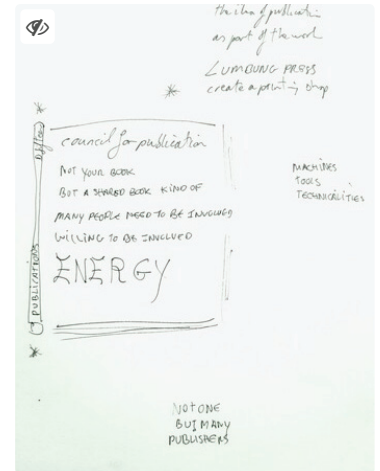 the idea of publication
as part of the work
LUMBUNG PRESS
create a printing shop
council for publication
NOT YOUR BOOK
BUT A SHARED BOOK KIND OF
MANY PEOPLE NEED TO BE INVOLVED
WILLING TO BE INVOLVED
ENERGY
PUBLICATIONS
MACHINES
TOOLS
TECHNICALITIES
NOT ONE
BUT MANY
PUBLISHERS